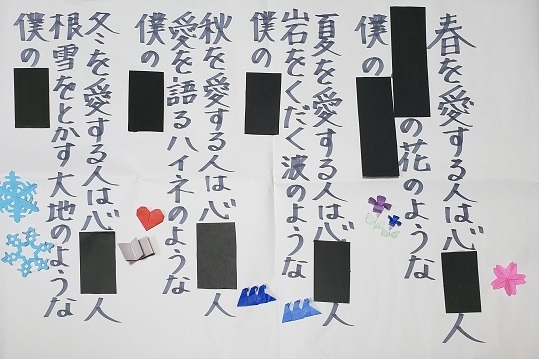 春を愛する人は心人
の花のような
僕の
夏を愛する人は心人
岩をくだく波のような
僕の
秋を愛する人は心人
愛を語るハイネのような
僕の
冬を愛する人は心人
根雪をとかす大地のような
僕の